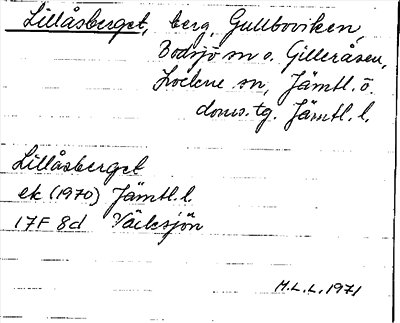 Lillåsberget, berg, Gullboviken,
Bodsjö sn o. Gilleråsen,
Lockne sn, Jämtl. ö.
doms. tg. Jämtl. l.
Lillåsberget
ek (1970) Jämtl. l.
17F 8d Väcksjön
M.L.L. 1971